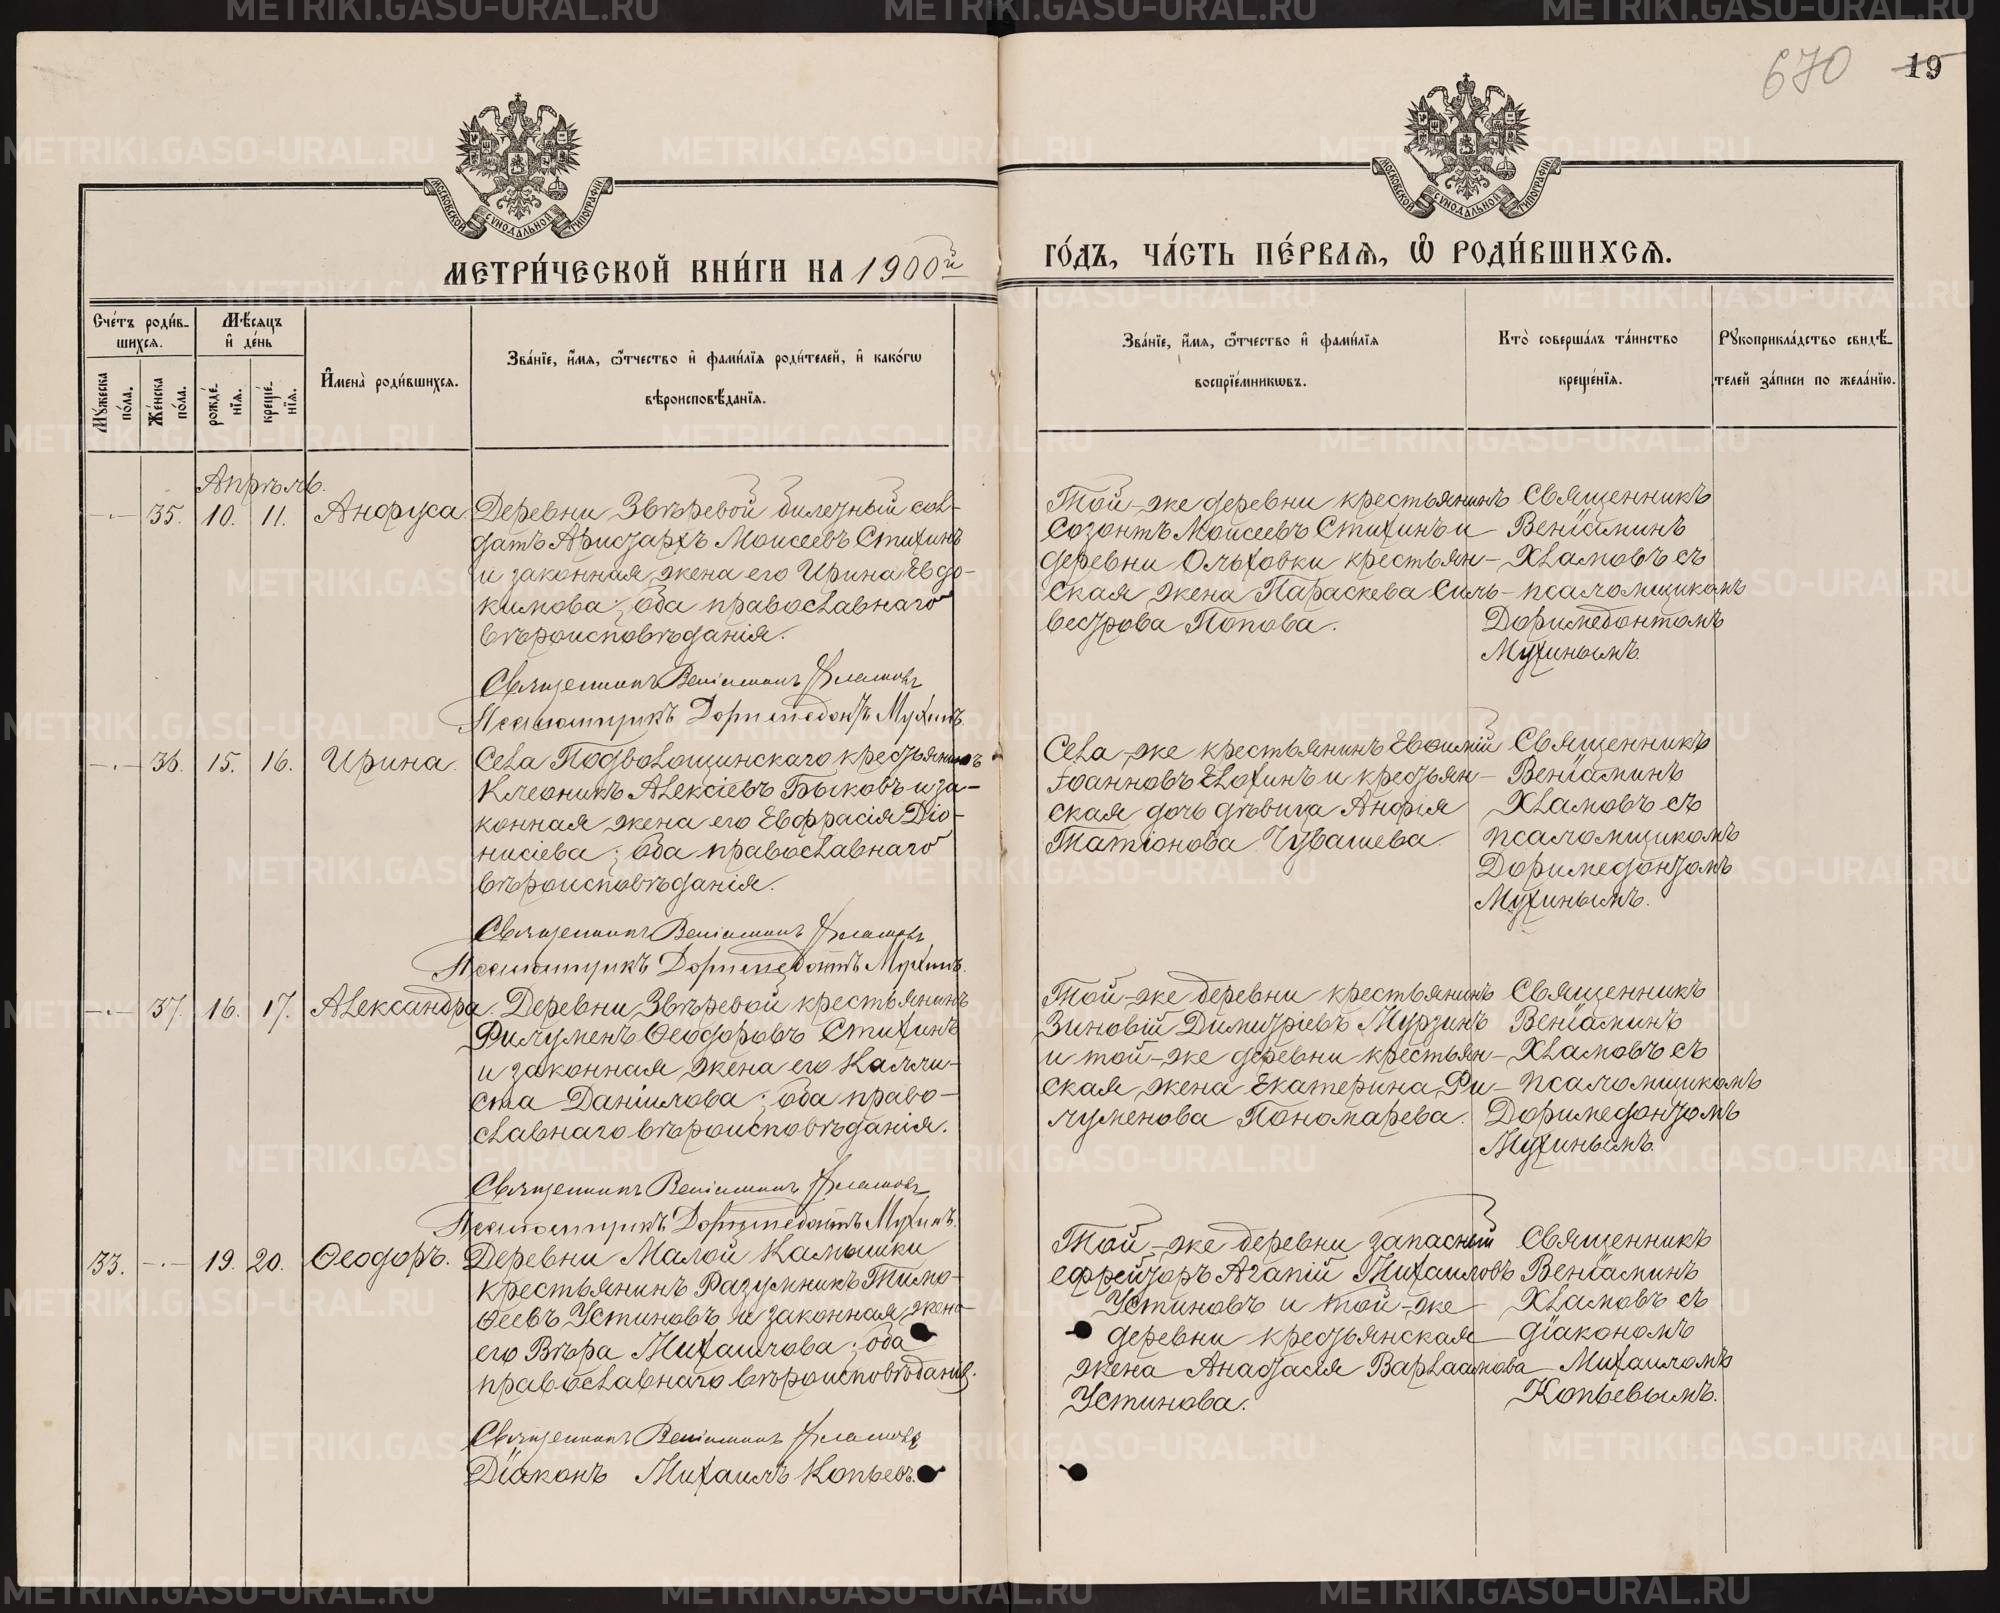 670
19
МОСКОВСКОЙ СѴНОДАЛЬНОЙ ТИПОГРАФІИ
МОСКОВСКОЙ СѴНОДАЛЬНОЙ ТИПОГРАФІИ
МЕТРИ́ЧЕСКОЙ КНИ́ГИ НА 1900й
ГО́ДЪ, ЧА́СТЬ ПЕ́РВАѦ, Ѡ҆ РОДИ́ВШИХСѦ.
Сче́тъ роди́в-
шихсѧ.
Мꙋ́жеска по́ла.
Же́нска по́ла.
Мѣ́сѧцъ
и҆ де́нь
рожде́-нїѧ.
креще́-нїѧ.
И҆мена̀ роди́вшихсѧ.
Зва́нїе, и҆́мѧ, ѻ҆́тчество и҆ фами́лїѧ роди́телей, и҆ како́гѡ
вѣроисповѣ́данїѧ.
Зва́нїе, и҆́мѧ, ѻ҆́тчество и҆ фами́лїѧ
воспрїе́мникѡвъ.
Кто̀ соверша́лъ та́инство
креще́нїѧ.
Рꙋкоприкла́дство свидѣ́-
телей за́писи по жела́нїю.
Апрѣль.
-·- 35. 10. 11. Анфуса
Деревни Звѣревой билетный сол-
датъ Аристархъ Моисеевъ Стихинъ
и законная жена его Ирина Евдо-
кимова; оба православнаго
вѣроисповѣданія.
Священникъ Веніаминъ Хламовъ
Псаломщикъ Доримедонтъ Мухинъ.
Той-же деревни крестьянинъ
Созонтъ Моисеевъ Стихинъ и
деревни Ольховки крестьян-
ская жена Параскева Силь-
вестрова Попова.
Священникъ
Веніаминъ
Хламовъ съ
псаломщикомъ
Доримедонтомъ
Мухинымъ.
-·- 36. 15. 16. Ирина.
Села Подволошинскаго крестьянинъ
Клеоникъ Алексіевъ Быковъ и за-
конная жена его Евфрасія Діо-
нисіева; оба православнаго
вѣроисповѣданія.
Священникъ Веніаминъ Хламовъ
Псаломщикъ Доримедонтъ Мухинъ.
Села-же крестьянинъ Евѳимій
Іоанновъ Елохинъ и крестьян-
ская дочь дѣвица Анфія
Татіонова Чувашева.
Священникъ
Веніаминъ
Хламовъ съ
псаломщикомъ
Доримедонтомъ
Мухинымъ.
-·- 37. 16. 17. Александра.
Деревни Звѣревой крестьянинъ
Филуменъ Ѳеодоровъ Стихинъ
и законная жена его Калли-
ста Даніилова; оба право-
славнаго вѣроисповѣданія.
Священникъ Веніаминъ Хламовъ
Псаломщикъ Доримедонтъ Мухинъ.
Той-же деревни крестьянинъ
Зиновій Димитріевъ Мурзинъ
и той-же деревни крестьян-
ская жена Екатерина Фи-
луменова Пономарева.
Священникъ
Веніаминъ
Хламовъ съ
псаломщикомъ
Доримедонтомъ
Мухинымъ.
33. -·- 19. 20. Ѳеодоръ.
Деревни Малой Камышки
крестьянинъ Разумникъ Тимо-
ѳеевъ Устиновъ и законная жена
его Вѣра Михаилова; оба
православнаго вѣроисповѣданія.
Священникъ Веніаминъ Хламовъ
Діаконъ Михаилъ Копьевъ.
Той-же деревни запасный
ефрейторъ Агапій Михаиловъ
Устиновъ и той-же
деревни крестьянская
жена Анастасія Варлаамова
Устинова.
Священникъ
Веніаминъ
Хламовъ съ
діакономъ
Михаиломъ
Копьевымъ.
METRIKI.GASO-URAL.RU